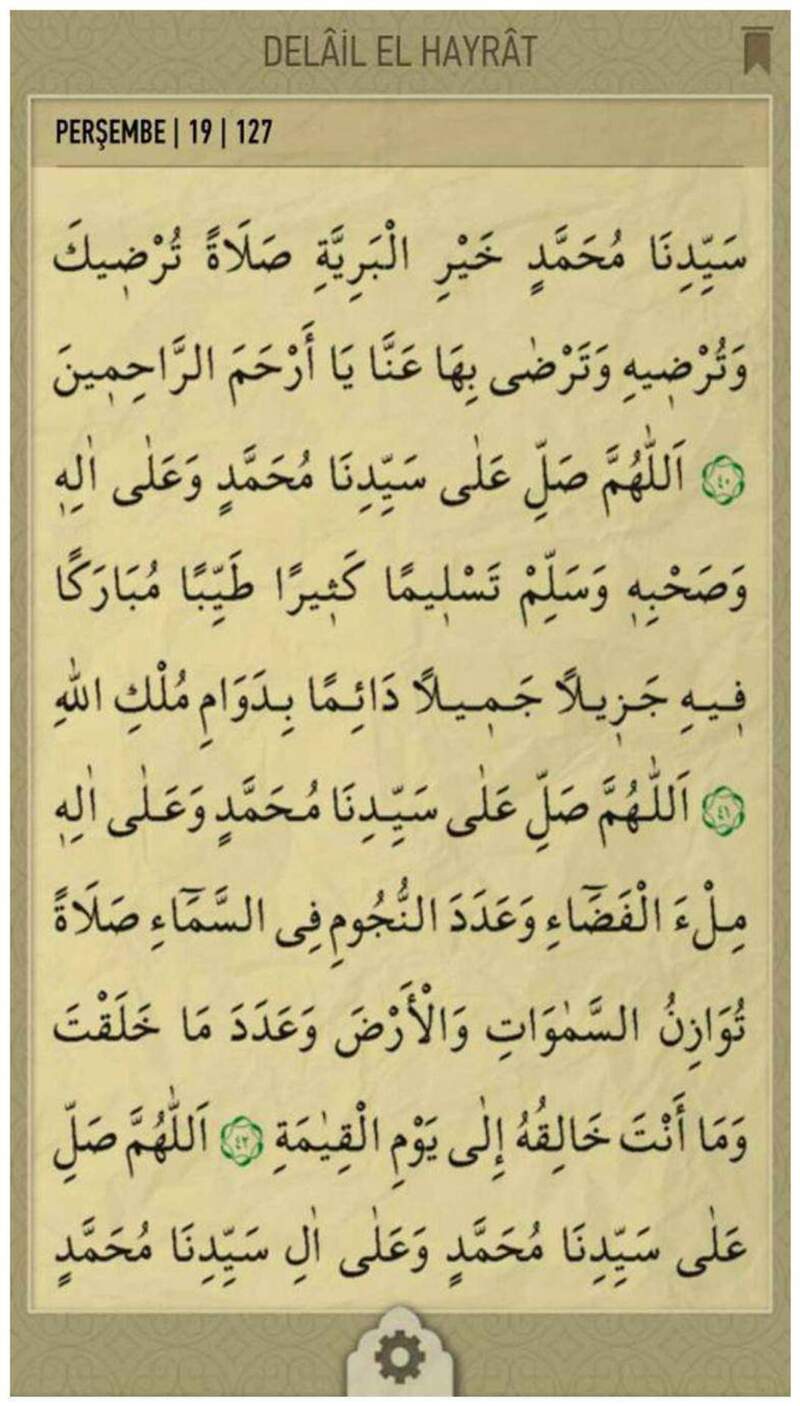 DELÂİL EL HAYRÂT
PERŞEMBE | 19 | 127
سَيِّدِنَا مُحَمَّدٍ خَيْرِ الْبَرِيَّةِ صَلَاةً تُرْضٖيكَ
وَتُرْضٖيهِ وَتَرْضٰى بِهَا عَنَّا يَا أَرْحَمَ الرَّاحِمٖينَ
﴿٤٠﴾ اَللّٰهُمَّ صَلِّ عَلٰى سَيِّدِنَا مُحَمَّدٍ وَعَلٰى اٰلِهٖ
وَصَحْبِهٖ وَسَلِّمْ تَسْلٖيمًا كَثٖيرًا طَيِّبًا مُبَارَكًا
فٖيهِ جَزٖيلًا جَمٖيلًا دَائِمًا بِدَوَامِ مُلْكِ اللهِ
﴿٤١﴾ اَللّٰهُمَّ صَلِّ عَلٰى سَيِّدِنَا مُحَمَّدٍ وَعَلٰى اٰلِهٖ
مِلْءَ الْفَضَٓاءِ وَعَدَدَ النُّجُومِ فِى السَّمَٓاءِ صَلَاةً
تُوَازِنُ السَّمٰوَاتِ وَالْأَرْضَ وَعَدَدَ مَا خَلَقْتَ
وَمَا أَنْتَ خَالِقُهُ إِلٰى يَوْمِ الْقِيٰمَةِ ﴿٤٢﴾ اَللّٰهُمَّ صَلِّ
عَلٰى سَيِّدِنَا مُحَمَّدٍ وَعَلٰى اٰلِ سَيِّدِنَا مُحَمَّدٍ